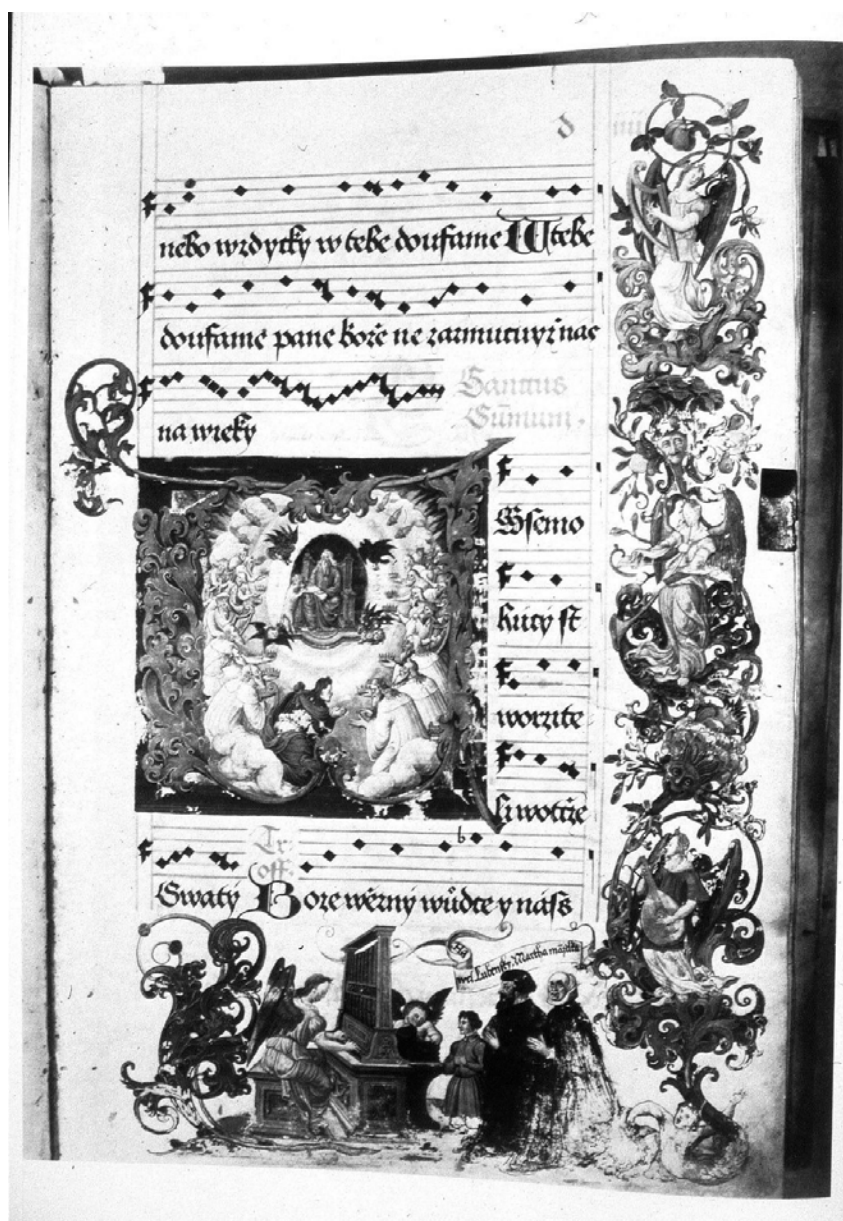 d iiij
nebo wzdytky w tebe doufame W tebe
doufame pane boże ne zarmutuyż nas
na wieky
Sanctus
Sūmum.
Wssemo
hūcy st
worzite
li wotcże
Tr.
off.
Swaty Boże wěrný wůdce y náss
Lubensky. Martha māzelka